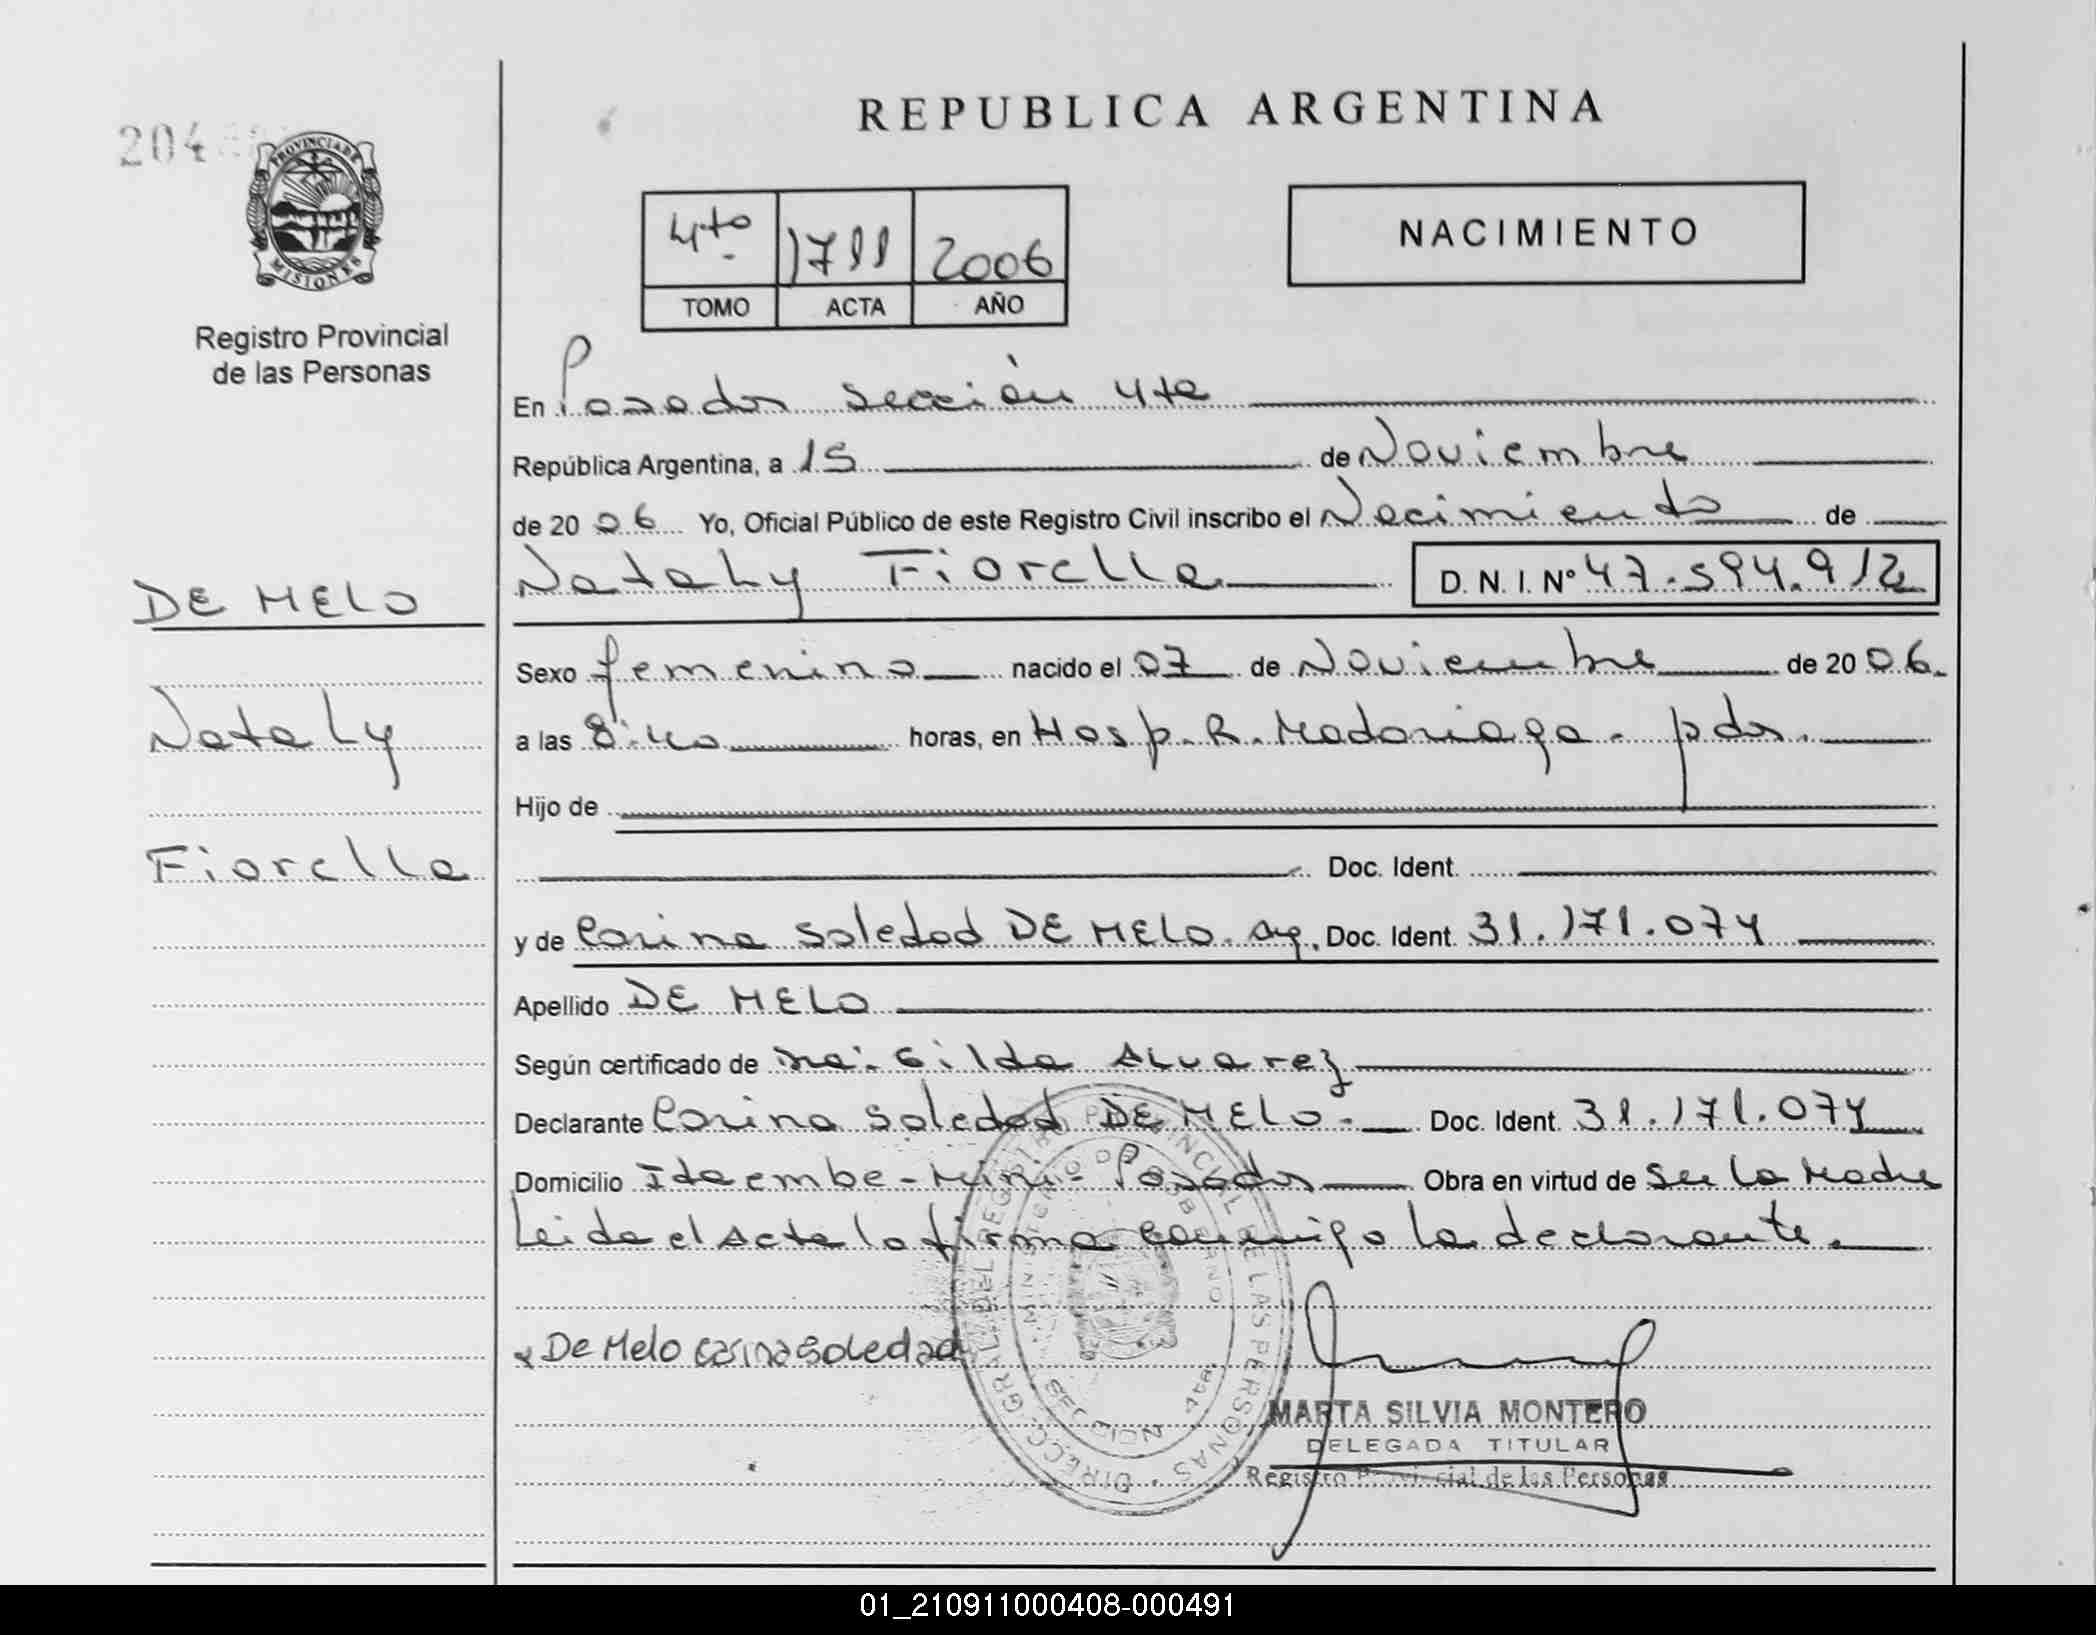 REPUBLICA ARGENTINA
204
PROVINCIA DE
MISIONES
Registro Provincial
de las Personas
4to 1711 2006
TOMO ACTA AÑO
NACIMIENTO
En Posadas sección 4ta
República Argentina, a 15 de Noviembre
de 2006 Yo, Oficial Público de este Registro Civil inscribo el Nacimiento de
Nataly Fiorella D. N. I. Nº 47.594.912
DE MELO
Nataly
Fiorella
Sexo femenino nacido el 07 de Noviembre de 2006.
a las 8:40 horas, en Hosp. R. Madariaga - pdas.
Hijo de
Doc. Ident.
y de Carina Soledad DE MELO. arg. Doc. Ident. 31.171.074
Apellido DE MELO
Según certificado de Gilda Alvarez
Declarante Carina Soledad DE MELO.- Doc. Ident. 31.171.074
Domicilio Itaembe-Mini- Posadas Obra en virtud de Ser la Madre
Leida el Acta la firma conmigo la declarante.
De Melo Carina Soledad
DIRECC. GRAL. DEL REGISTRO PROVINCIAL DE LAS PERSONAS
MINISTERIO DE GOBIERNO
SECCION 4ta.
MARTA SILVIA MONTERO
DELEGADA TITULAR
Registro Provincial de las Personas
01_210911000408-000491